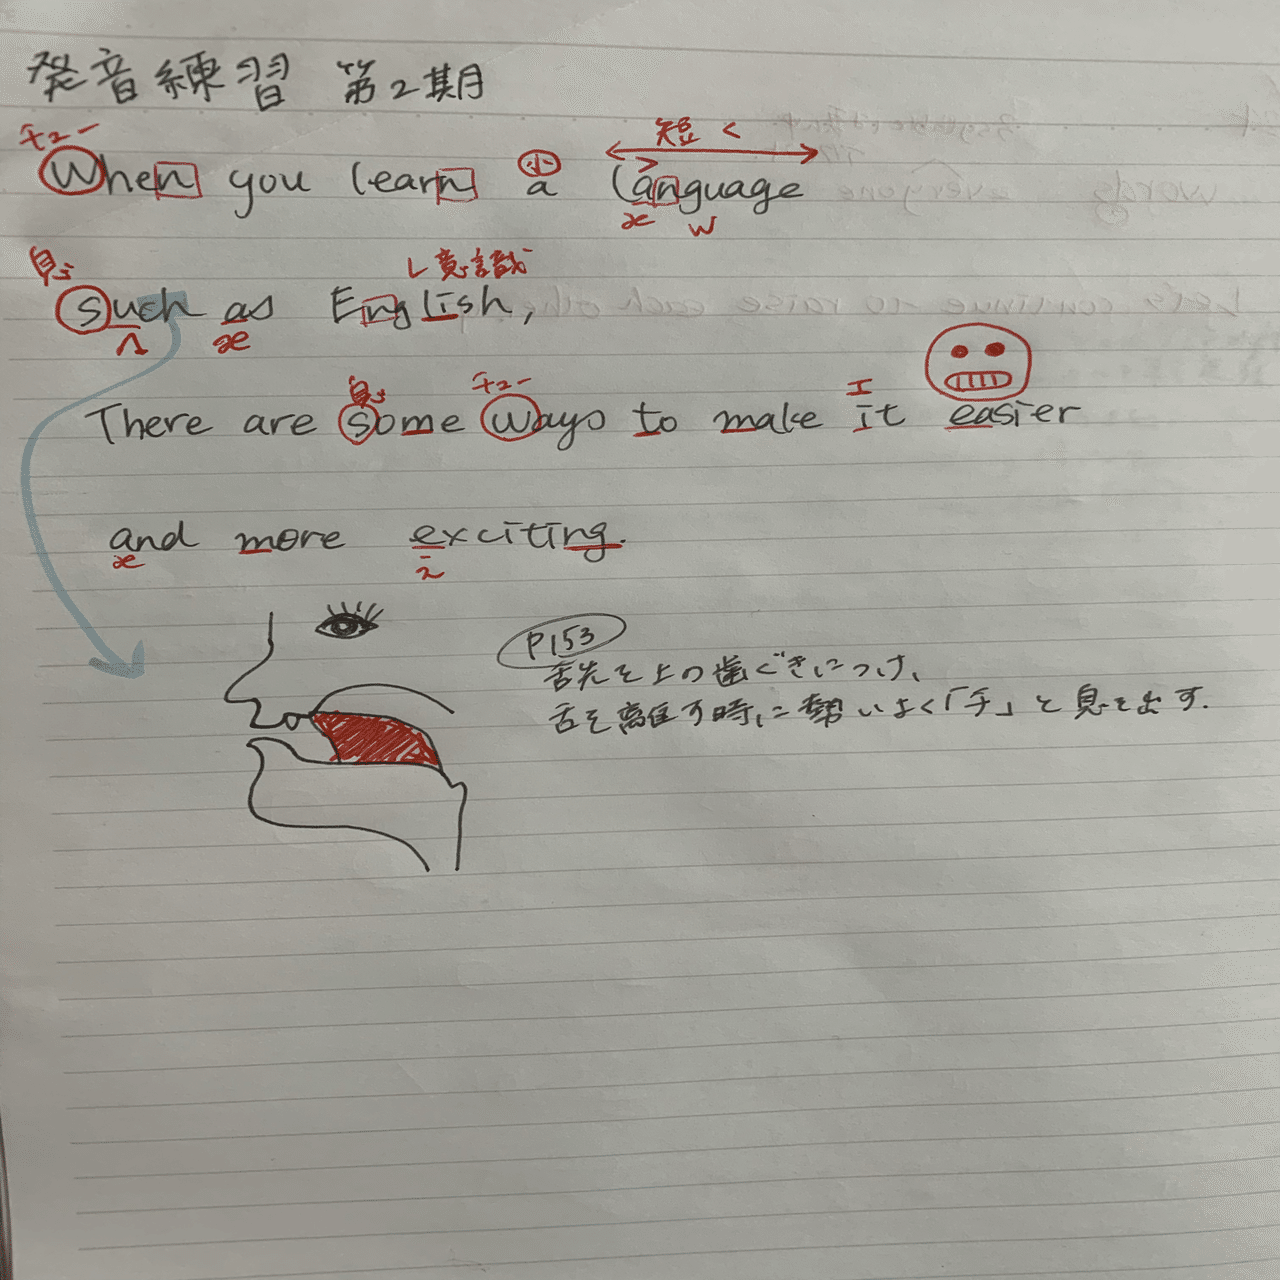 発音練習 第2期
チュー 小 短く
When you learn a language
æ w
息 L意識
such as English,
ʌ æ
息 チュー I
There are some ways to make it easier
and more exciting.
æ i
P153
舌先を上の歯ぐきにつけ、
舌を離す時に勢いよく「チ」と息を出す.